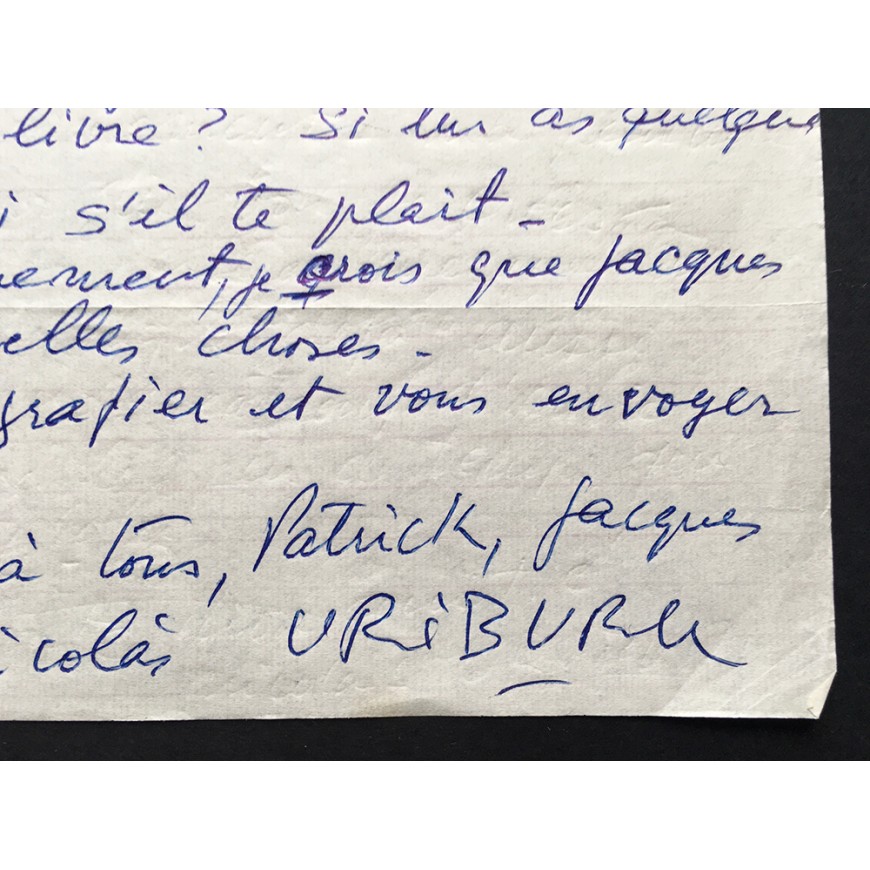 livre? Si tu as quelque
i s'il te plait -
nement, je crois que Jacques
elles choses -
grafier et vous envoyer
à tous, Patrick, Jacques
icolás URiBURu